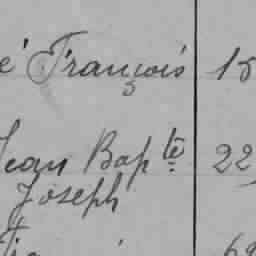 é François 15
Jean Bapte 22
Joseph